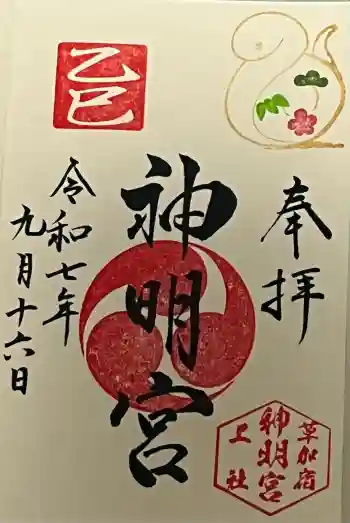 奉拝
草加宿
神明宮
上社
神明宮
乙巳
令和七年
九月十六日